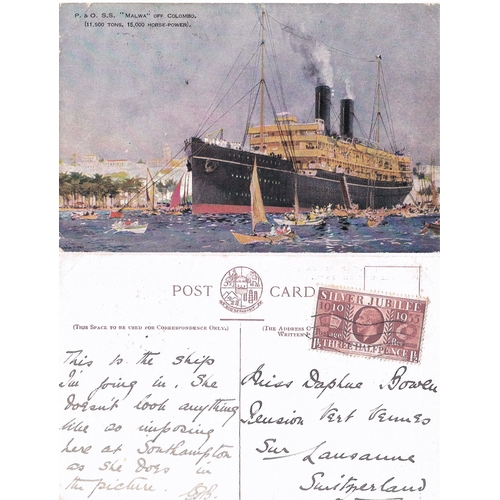 P. & O. S.S. "MALWA" OFF COLOMBO.
(11,500 TONS, 15,000 HORSE-POWER).
POST CARD
(THIS SPACE TO BE USED FOR CORRESPONDENCE ONLY.)
(THE ADDRESS O
WRITTEN
SILVER JUBILEE
1910 1935
THREE HALFPENCE
This is the ship
I'm going in. She
doesn't look anything
like so imposing
here at Southampton
as she does in
the picture.
Miss Daphne Bowen
Pension Vert
Sur Lausanne
Switzerland